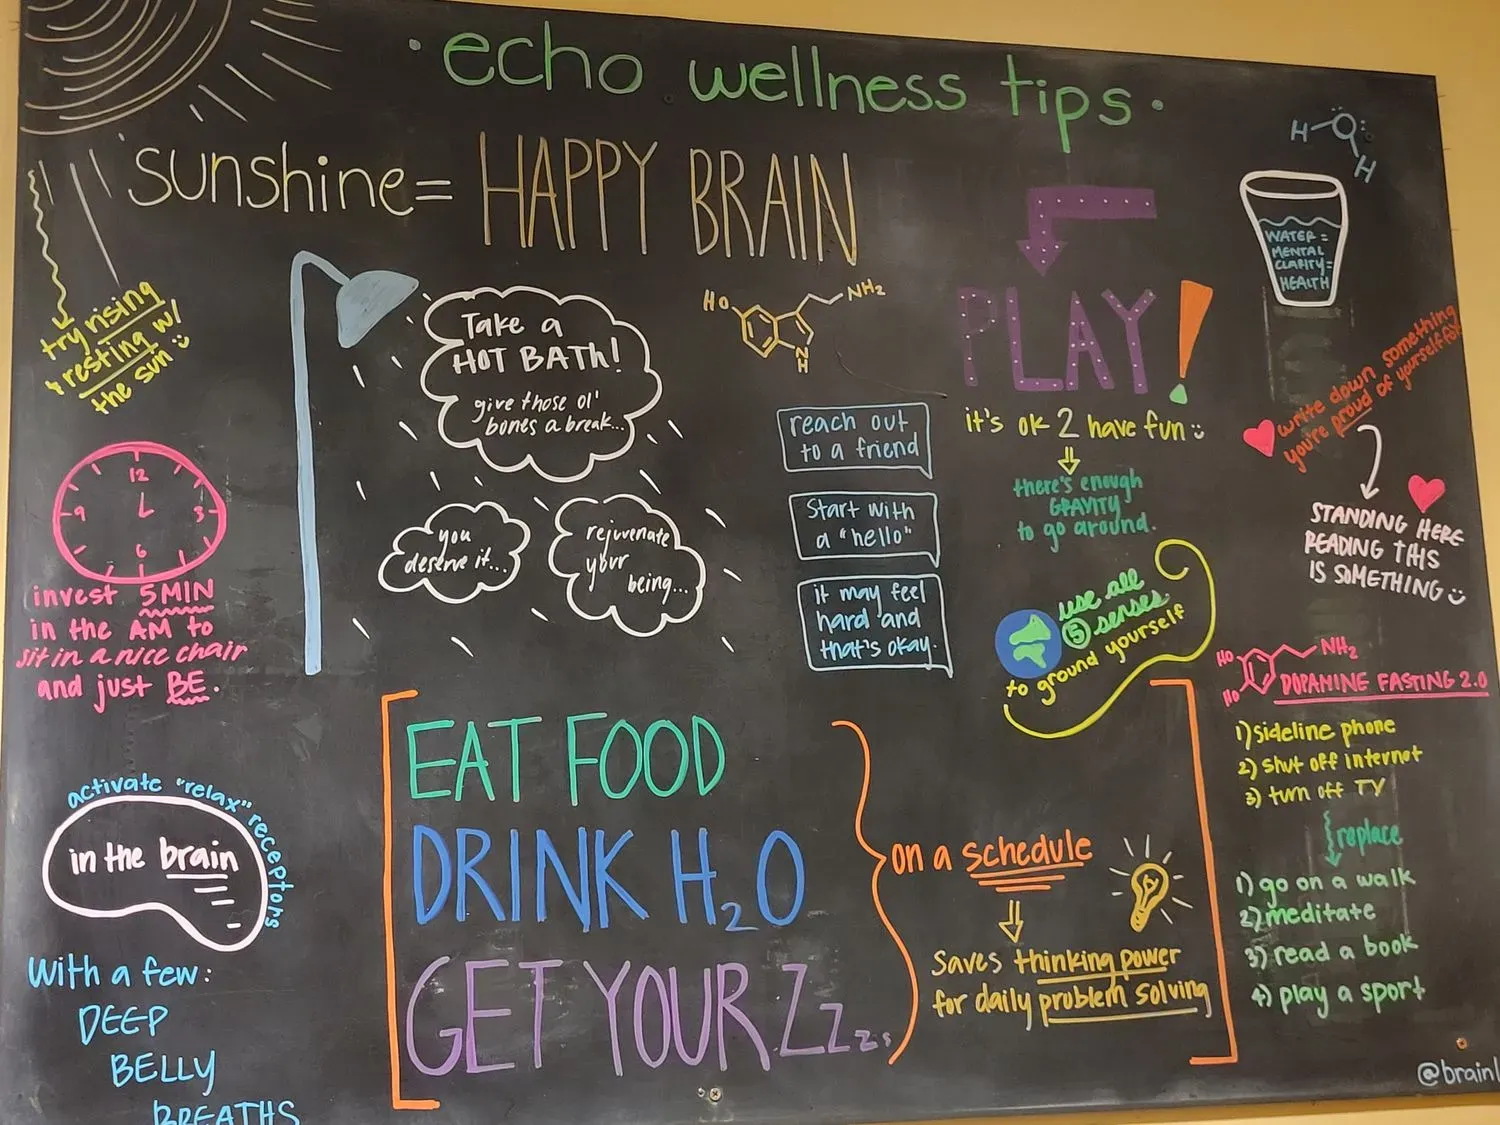 • echo wellness tips •
sunshine = HAPPY BRAIN
try rising
& resting w/
the sun
Take a
HOT BATH!
give those ol'
bones a break...
you
deserve it...
rejuvenate
your
being...
HO
NH2
N
H
PLAY!
it's ok 2 have fun
there's enough
GRAVITY
to go around.
H O
H
WATER =
MENTAL
CLARITY =
HEALTH
write down something
you're proud of yourself for
STANDING HERE
READING THIS
IS SOMETHING
reach out
to a friend
Start with
a "hello"
it may feel
hard and
that's okay.
use all
5 senses
to ground yourself
12
9 3
6
invest 5 MIN
in the AM to
sit in a nice chair
and just BE.
activate "relax" receptors
in the brain
with a few:
DEEP
BELLY
BREATHS
EAT FOOD
DRINK H2O
GET YOUR Zzzs
on a schedule
Saves thinking power
for daily problem solving
HO
HO
NH2
DOPAMINE FASTING 2.0
1) sideline phone
2) shut off internet
3) turn off TV
replace
1) go on a walk
2) meditate
3) read a book
4) play a sport